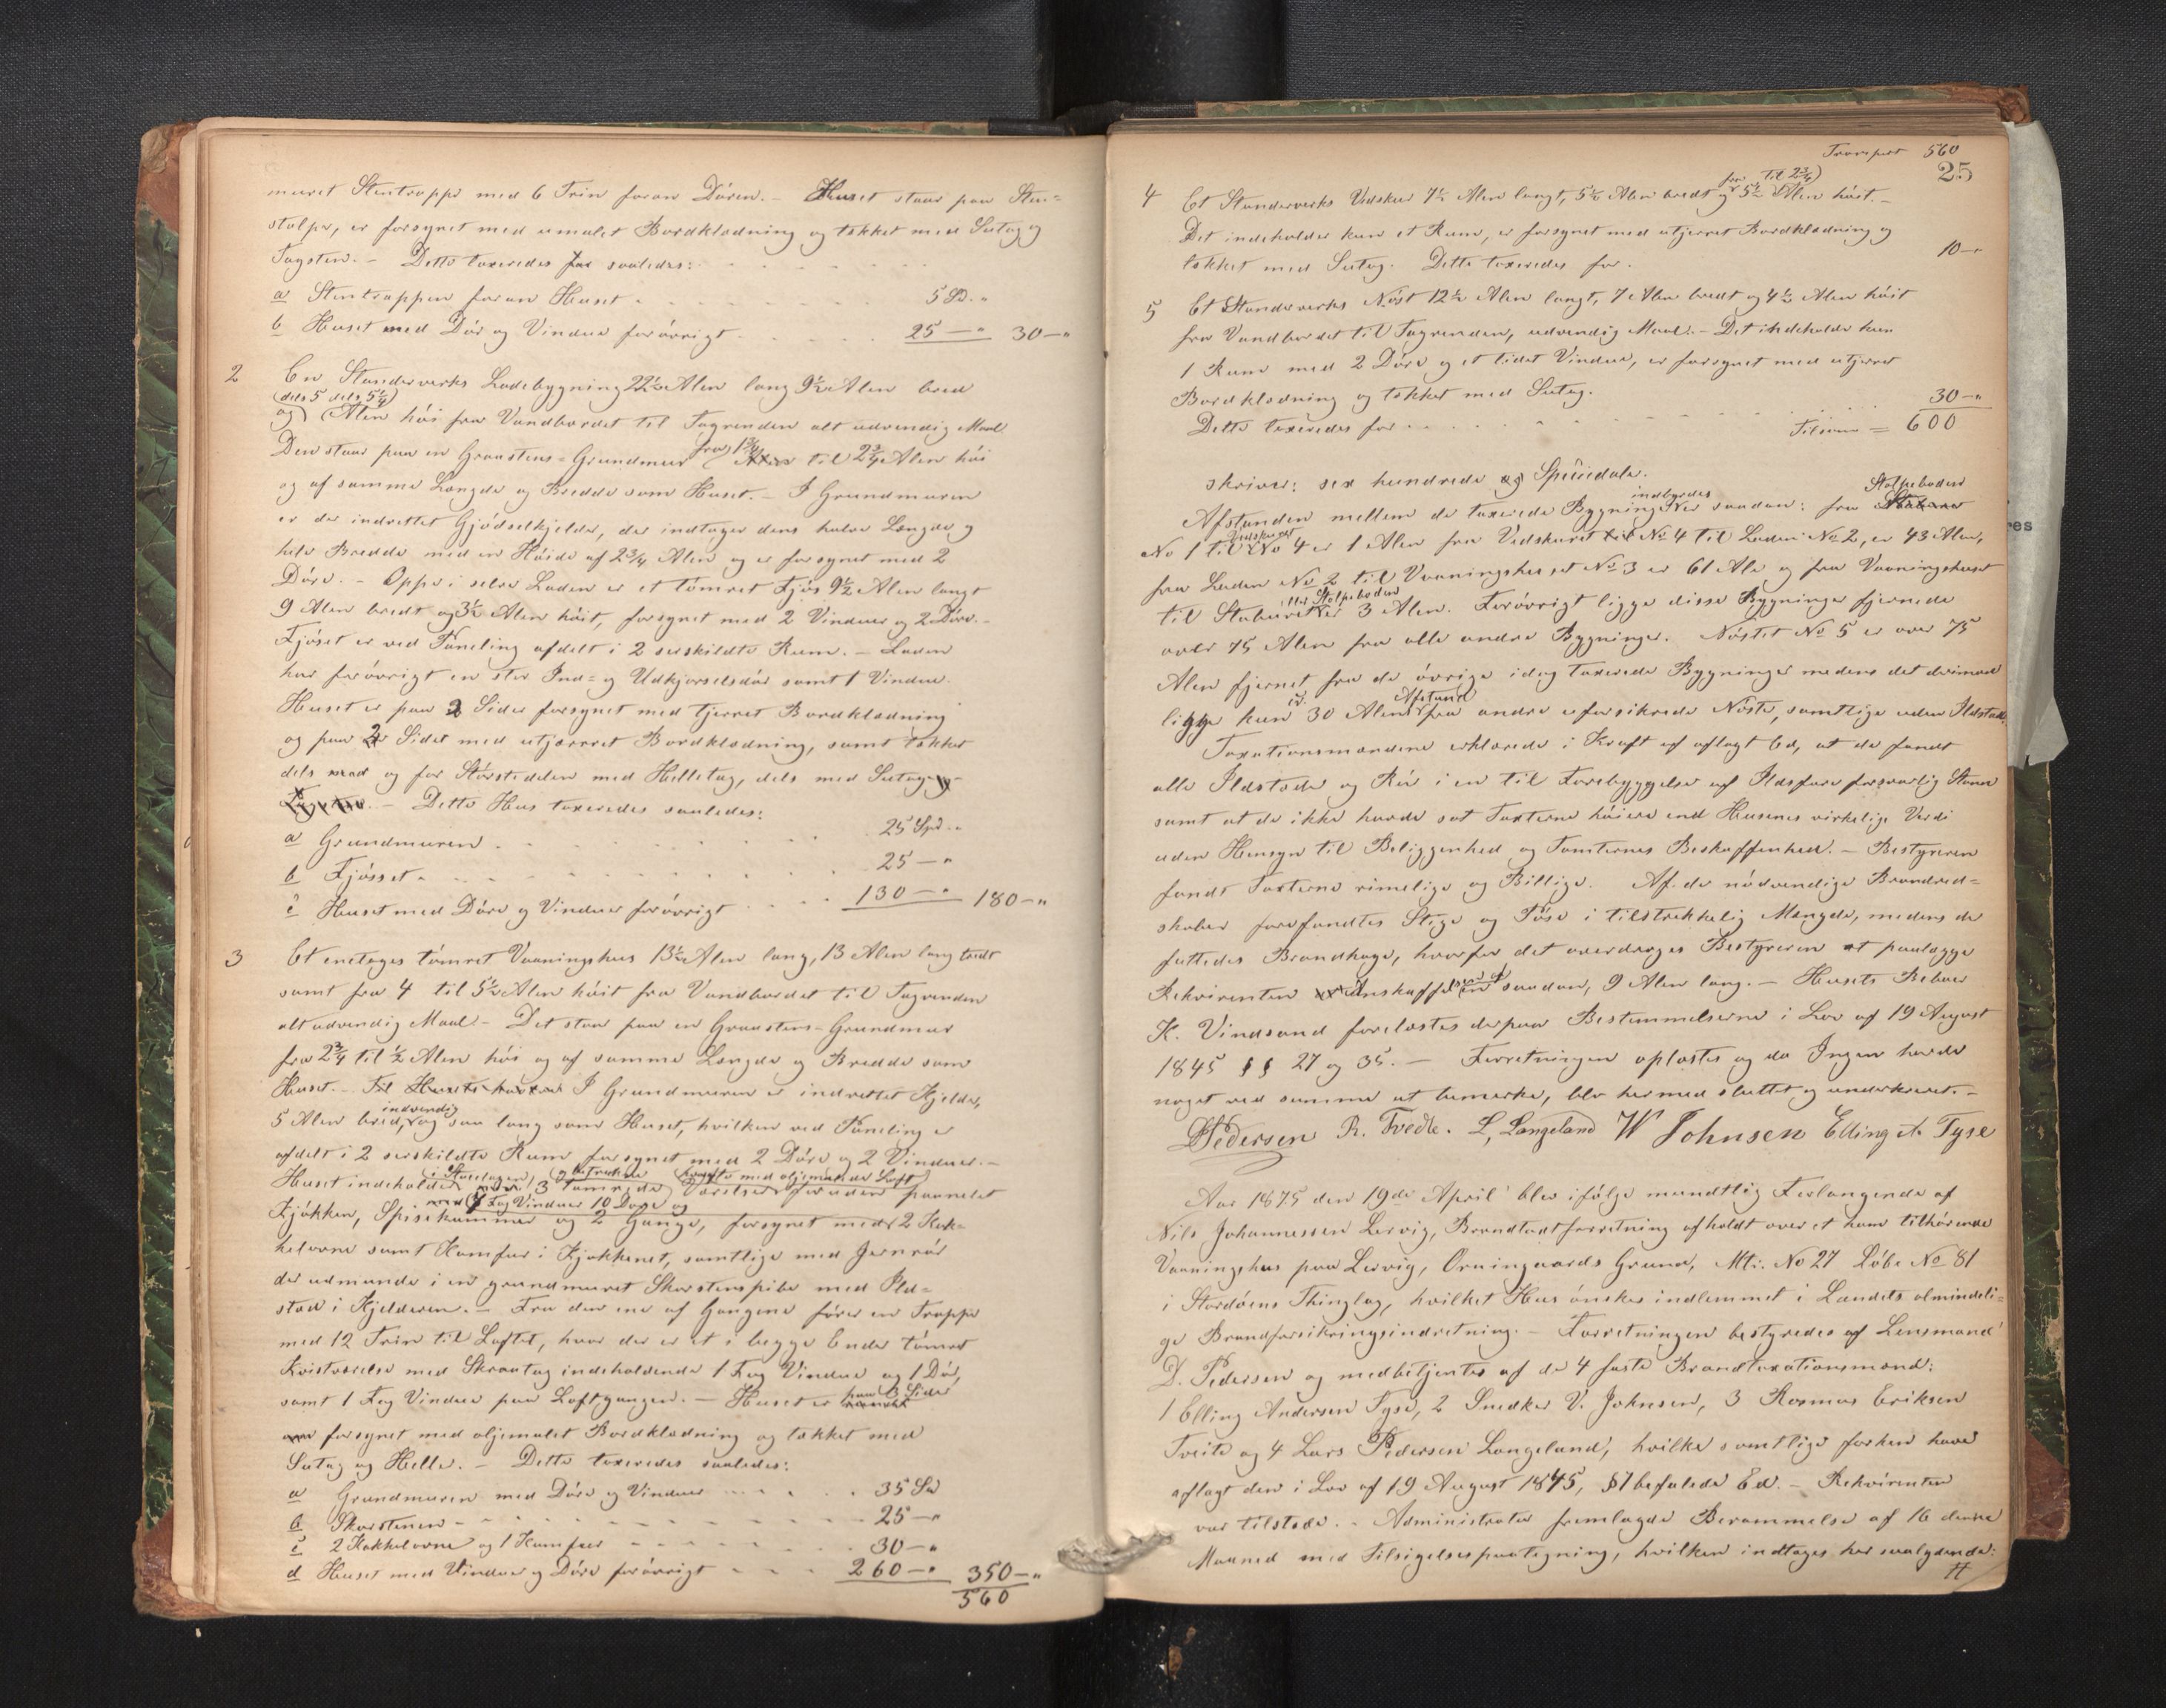 muret Stentroppe med 6 Trin foran Dören. – Huset staar paa Sten-
stolpe, er forsynet med umalet Bordklædning og tækket med Sutag og
Tagsten. – Dette taxeredes saaledes:
a Stentroppen foran Huset 5 Sp. "
b Huset med Dör og Vindue forövrigt 25 – " 30 – "
2 En Stenderverks Ladebygning 22½ Alen lang 9½ Alen bred
(dels 5 dels 5¼)
og Alen höi fra Vandbordet til Tagrenden alt udvendig Maal.
Den staar paa en Graastens-Grundmur fra 1¾ til 2¾ Alen höi
og af samme Længde og Bredde som Huset. – I Grundmuren
er der indrettet Gjödselkjelder, der indtager dens halve Længde og
hele Bredde med en Höide af 2¾ Alen og er forsynet med 2
Döre. – Oppe i selve Laden er et tömret Fjös 9½ Alen langt
9 Alen bredt og 3½ Alen höit, forsynet med 2 Vinduer og 2 Döre. –
Fjöset er ved Paneling afdelt i 2 serskildte Rum. – Laden
har forövrigt en stor Ind- og Udkjörselsdör samt 1 Vindue.
Huset er paa 2 Sider forsynet med tjerret Bordklædning
og paa 2 Sider med utjærret Bordklædning, samt tækket
dels og for Störstedelen med Helletag, dels med Sutag
– Dette Hus taxeredes saaledes:
a Grundmuren 25 Spd. "
b Fjöset 25 – "
c Huset med Döre og Vinduer forövrigt 130 – " 180 – "
3 Et enetages tömret Vaaningshus 13½ Alen lang, 13 Alen bredt
samt fra 4 til 5½ Alen höit fra Vandbordet til Tagrenden
alt udvendig Maal. – Det staar paa en Graastens-Grundmur
fra 2¾ til ½ Alen höi og af samme Længde og Bredde som
Huset. – I Grundmuren er indrettet Kjelder,
5 Alen bred, indvendig og saa lang som Huset, hvilken ved Paneling er
afdelt i 2 serskildte Rum forsynet med 2 Döre og 2 Vinduer. –
Huset indeholder i Stueetagen 3 tömrede betrukne Værelser med oljemalede Loft foruden paanelet
Kjökken, Spisekammer og 2 Gange, forsynet med 7 Fag Vinduer 10 Döre og 2 Kak-
kelovne samt Komfur i Kjökkenet, samtlige med Jernrör
der udmunde i en grundmuret Skorstenspibe med Ild-
sted i Kjelderen. – Fra den ene af Gangene förer en Trappe
med 12 Trin til Loftet, hvor der er et i begge Ender tömret
Kvistværelse med Skraatag indeholdende 1 Fag Vindue og 1 Dör,
samt 1 Fag Vindue paa Loftgangen. – Huset er paa 3 Sider
forsynet med oljemalet Bordklædning og tækket med
Sutag og Helle. – Dette taxeredes saaledes:
a Grundmuren med Döre og Vinduer 35 Sp
b Skorstenen 25 – "
c 2 Kakkelovne og 1 Komfur 30 – "
d Huset med Vinduer og Döre forövrigt 260 – " 350 – "
560
Transport 560
25
4 Et Stenderverks Vedskur 7½ Alen langt, 5½ Alen bredt og fra 5½ til 2¾ Alen höit. –
Det indeholder kun et Rum, er forsynet med utjerret Bordklædning og
tækket med Sutag. Dette taxeredes for. 10 – "
5 Et Stenderverks Nöst 12½ Alen langt, 7 Alen bredt og 4½ Alen höit
fra Vandbordet til Tagrenden, udvendig Maal. – Det indeholder kun
1 Rum med 2 Döre og et lidet Vindue, er forsynet med utjerret
Bordklædning og tækket med Sutag.
Dette taxeredes for 30 – "
Tilsam = 600
skriver: sex hundrede Speciedaler.
Afstanden mellem de taxerede Bygninger indbyrdes er saadan: fra Stolpeboden
No 1 til Vedskuret No 4 er 1 Alen fra Vedskuret No 4 til Laden No 2, er 43 Alen,
fra Laden No 2 til Vaaningshuset No 3 er 61 Ale og fra Vaaningshuset
til Staburet eller Stolpeboden er 3 Alen. Forövrigt ligge disse Bygninger fjernede
over 75 Alen fra alle andre Bygninger. Nöstet No 5 er over 75
Alen fjernet fra de övrige idag taxerede Bygninger medens det derimod
ligger kun 30 Alen Afstand fra andre uforsikrede Nöste, samtlige uden Ildsted.
Taxationsmændene erklærede i Kraft af aflagt Ed, at de fandt
alle Ildstede og Rör i en til Forebyggelse af Ildsfare forsvarlig Stand
samt at de ikke havde sat Taxterne höiere end Husenes virkelige Verdi
uden Hensyn til Beliggenhed og Tomternes Beskaffenhed. – Bestyreren
fandt Taxterne rimelige og Billige. Af de nödvendige Brandred-
skaber forefandtes Stige og Pöse i tilstrekkelig Mængde, medens der
fattedes Brandhage, hvorfor det overdroges Bestyreren at paalægge
Rekvirenten Anskaffelsen af en saadan, 9 Alen lang. – Husets Beboer
K. Vindsand forelæstes derpaa Bestemmelserne i Lov af 19 August
1845 §§ 27 og 35. – Forretningen oplæstes og da Ingen havde
noget ved samme at bemerke, blev hermed sluttet og underskrevet. –
D. Pedersen R. Tvedte. L. Langeland W Johnsen Elling A. Tyse
Aar 1875 den 19de April blev ifölge mundtlig Forlangende af
Nils Johannessen Lervig, Brandtaxtforretning afholdt over et ham tilhörende
Vaaningshus paa Lervig, Orningaards Grund, Mt: No 27 Löbe No 81
i Stordöens Thinglag, hvilket Hus önskes indlemmet i Landets almindeli-
ge Brandforsikringsindretning. – Forretningen bestyredes af Lensmand
D. Pedersen og medbetjentes af de 4 faste Brandtaxationsmænd:
1 Elling Andersen Tyse, 2 Snedker V. Johnsen, 3 Rasmus Eriksen
Tveite og 4 Lars Pedersen Langeland, hvilke samtlige forhen have
aflagt den i Lov af 19 August 1845, § 7 befalede Ed. – Rekvirenten
var tilstede. – Administrator fremlagde Berammelse af 16 denne
Maaned med Tilsigelsespaategning, hvilken indtages her saalydende: